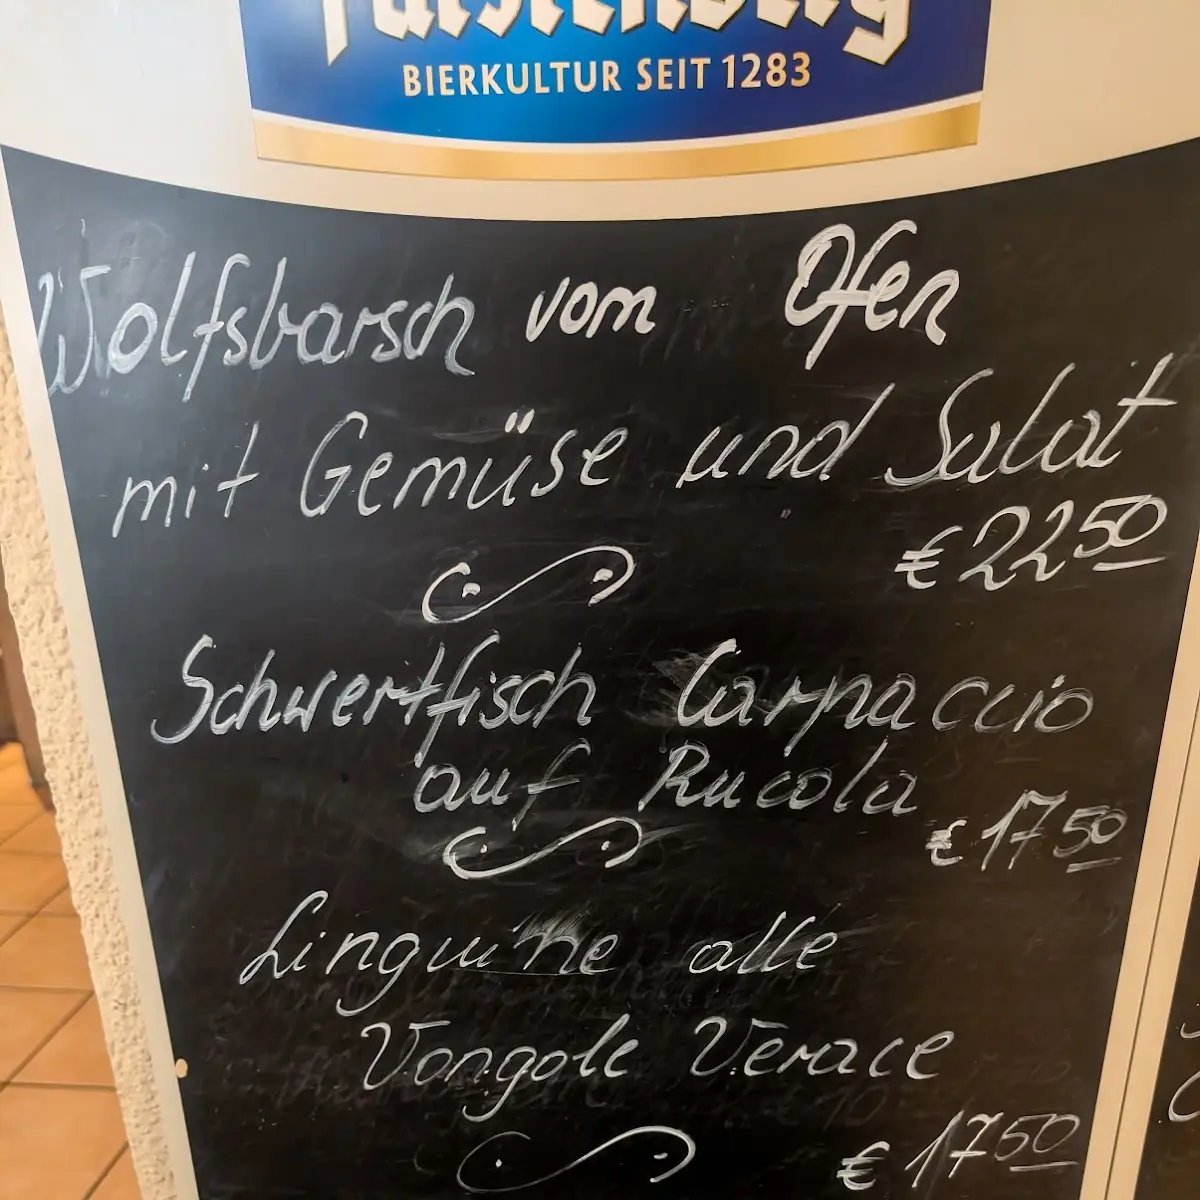 Fürstenberg
BIERKULTUR SEIT 1283
Wolfsbarsch vom Ofen
mit Gemüse und Salat
€ 22 50
Schwertfisch Carpaccio
auf Rucola
€ 17 50
Linguine alle
Vongole Verace
€ 17 50